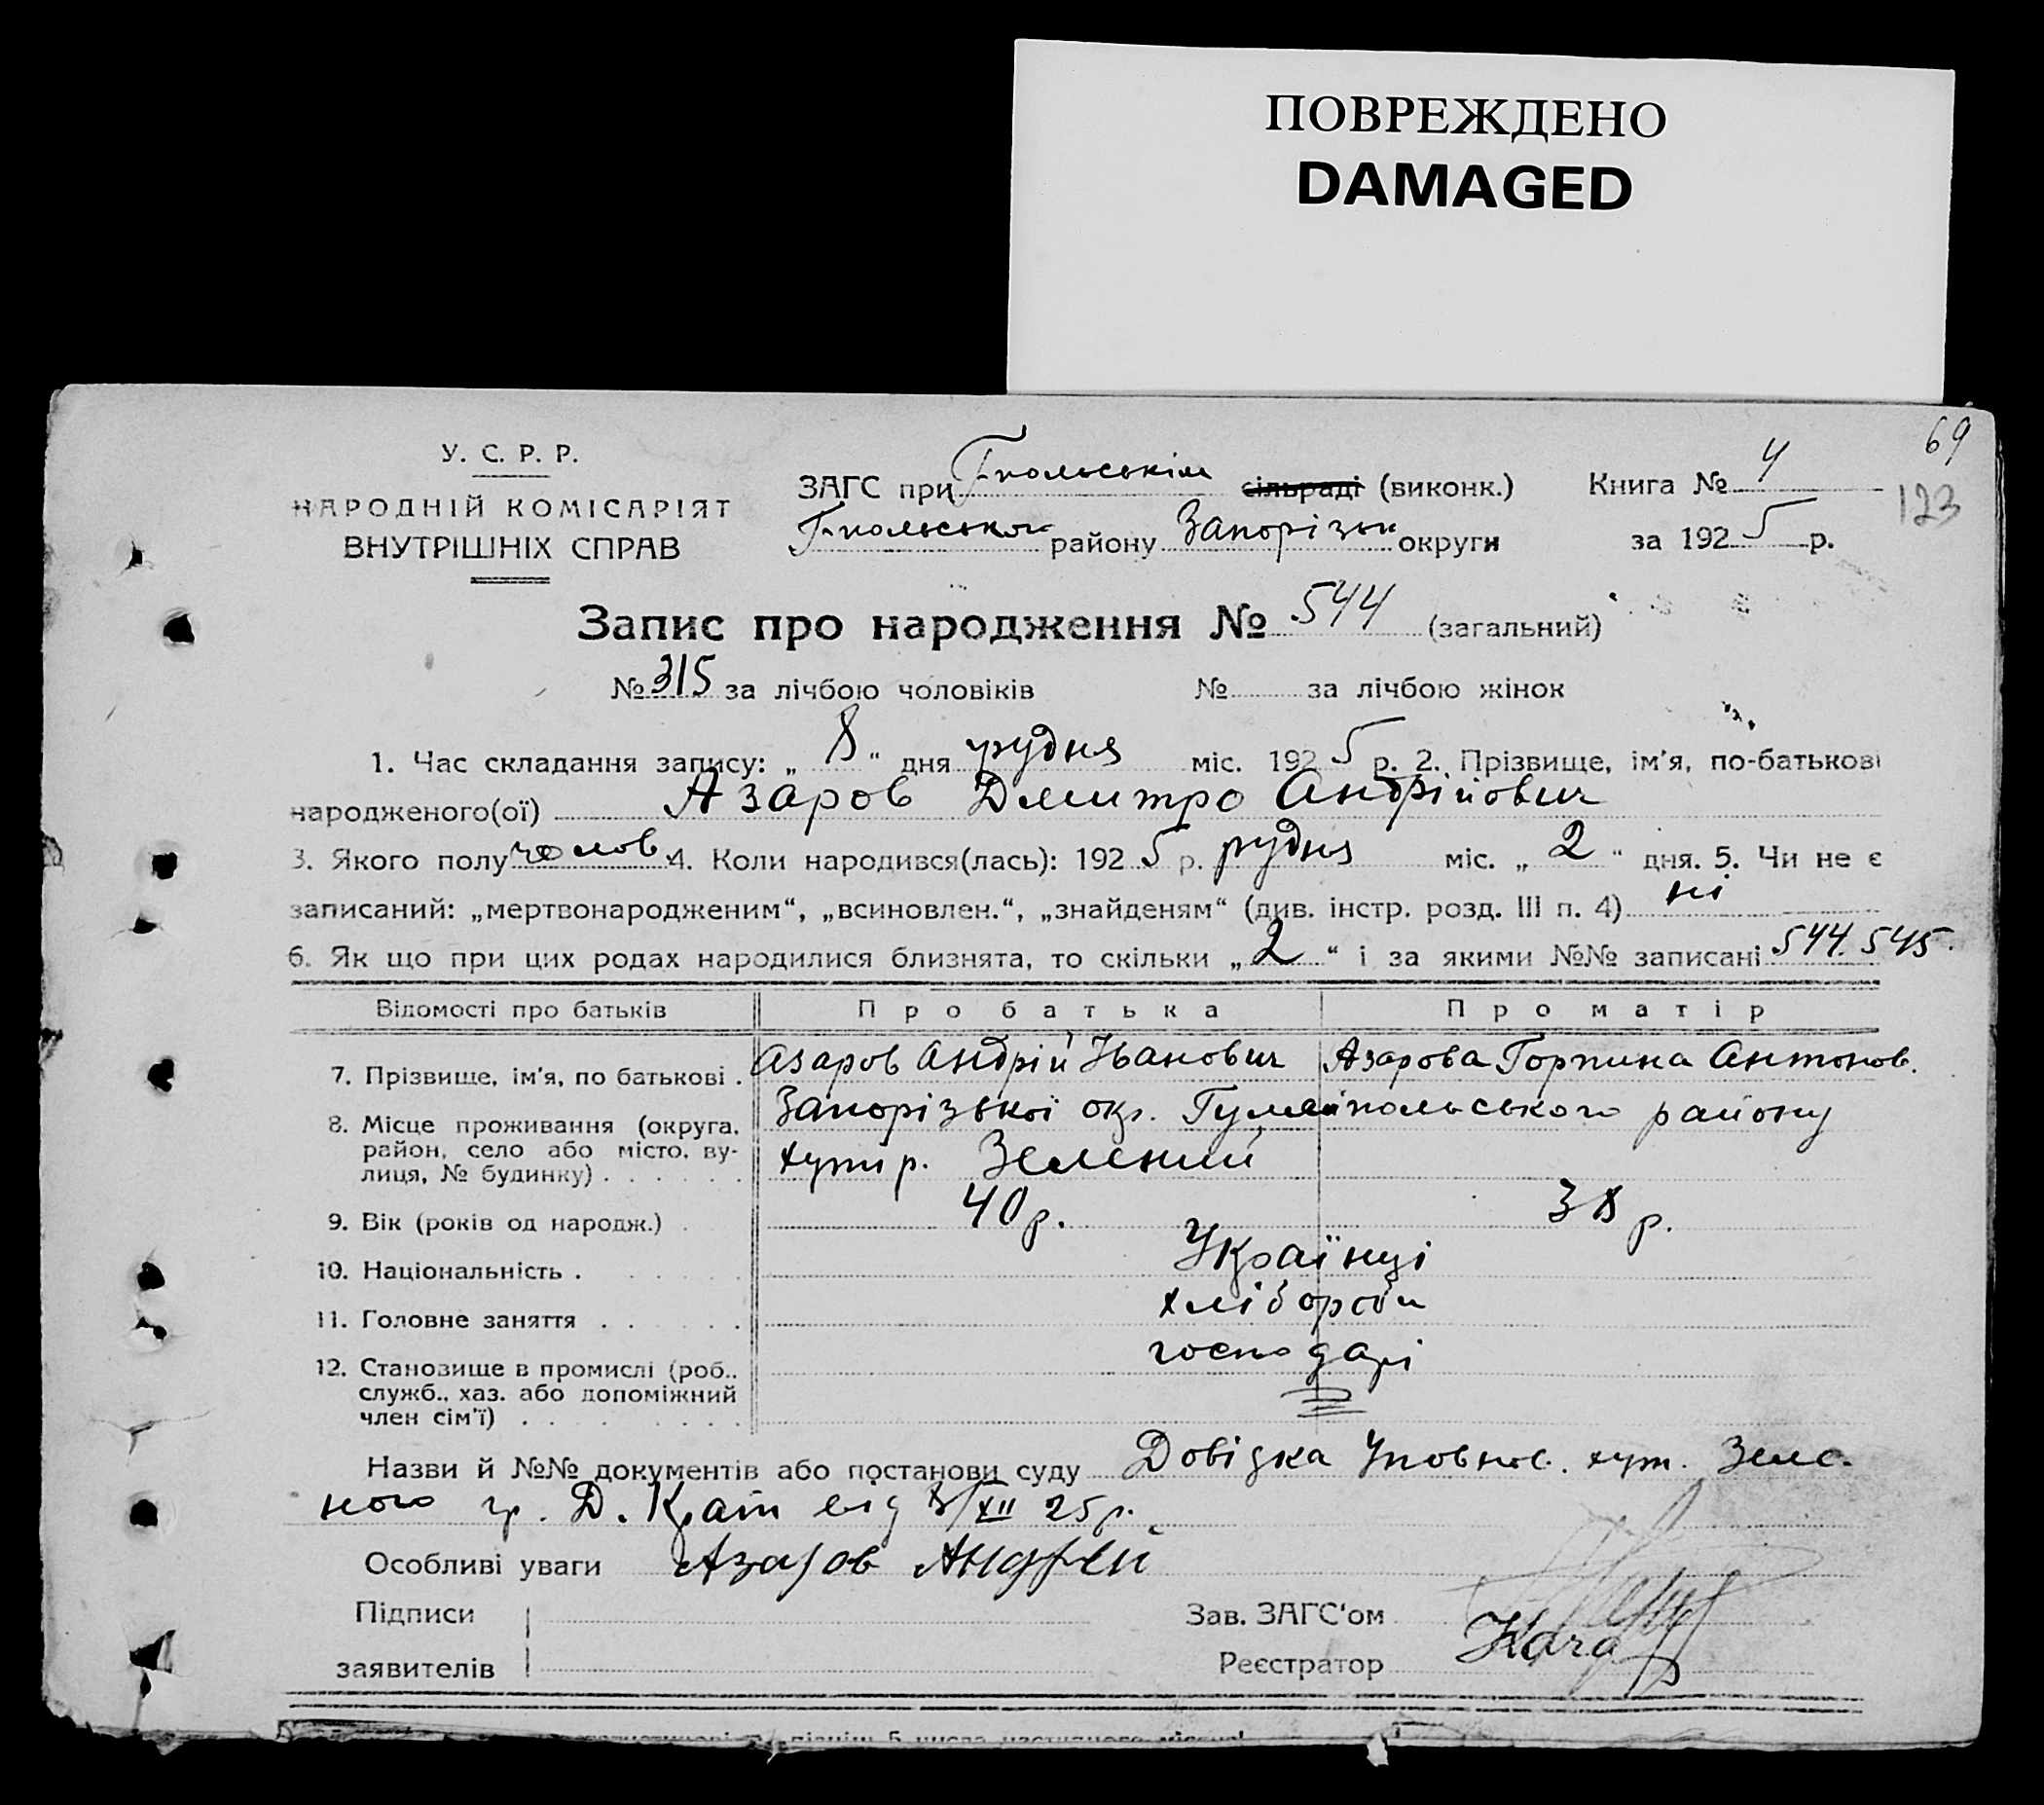 ПОВРЕЖДЕНО
DAMAGED
69
123
У. С. Р. Р.
НАРОДНІЙ КОМІСАРІЯТ
ВНУТРІШНІХ СПРАВ
ЗАГС при Г-польськім сільраді (виконк.) Книга № 4
Г-польськ району Запорізьк округи за 1925 р.
Запис про народження № 544 (загальний)
№ 315 за лічбою чоловіків № за лічбою жінок
1. Час складання запису: „ 8 “ дня грудня міс. 1925 р. 2. Прізвище, ім'я, по-батькові
народженого(ої) Азаров Дмитро Андрійович
3. Якого полу чолов. 4. Коли народився(лась): 1925 р. грудня міс. „ 2 “ дня. 5. Чи не є
записаний: „мертвонародженим“, „всиновлен.“, „знайденям“ (див. інстр. розд. III п. 4) ні
6. Як що при цих родах народилися близнята, то скільки „ 2 “ і за якими №№ записані 544. 545.
Відомості про батьків Про батька Про матір
7. Прізвище, ім'я, по батькові . Азаров Андрій Іванович Азарова Горпина Антонов.
8. Місце проживання (округа, Запорізької окр. Гуляйпольського району
район, село або місто, ву-
лиця, № будинку) . . . . . . хутір. Зелений
9. Вік (років од народж.) . 40 р. 38 р.
10. Національність . Українці
11. Головне заняття . . хлібороби
12. Становище в промислі (роб.. господарі
служб., хаз. або допоміжний
член сім'ї) . .
Назви й №№ документів або постанови суду Довідка Уповнов. хут. Зеле-
ного гр. Д. від 8/XII 25 р.
Особливі уваги Азаров Андрей
Підписи Зав. ЗАГС'ом
заявителів Реєстратор
5 числа наступного місяця